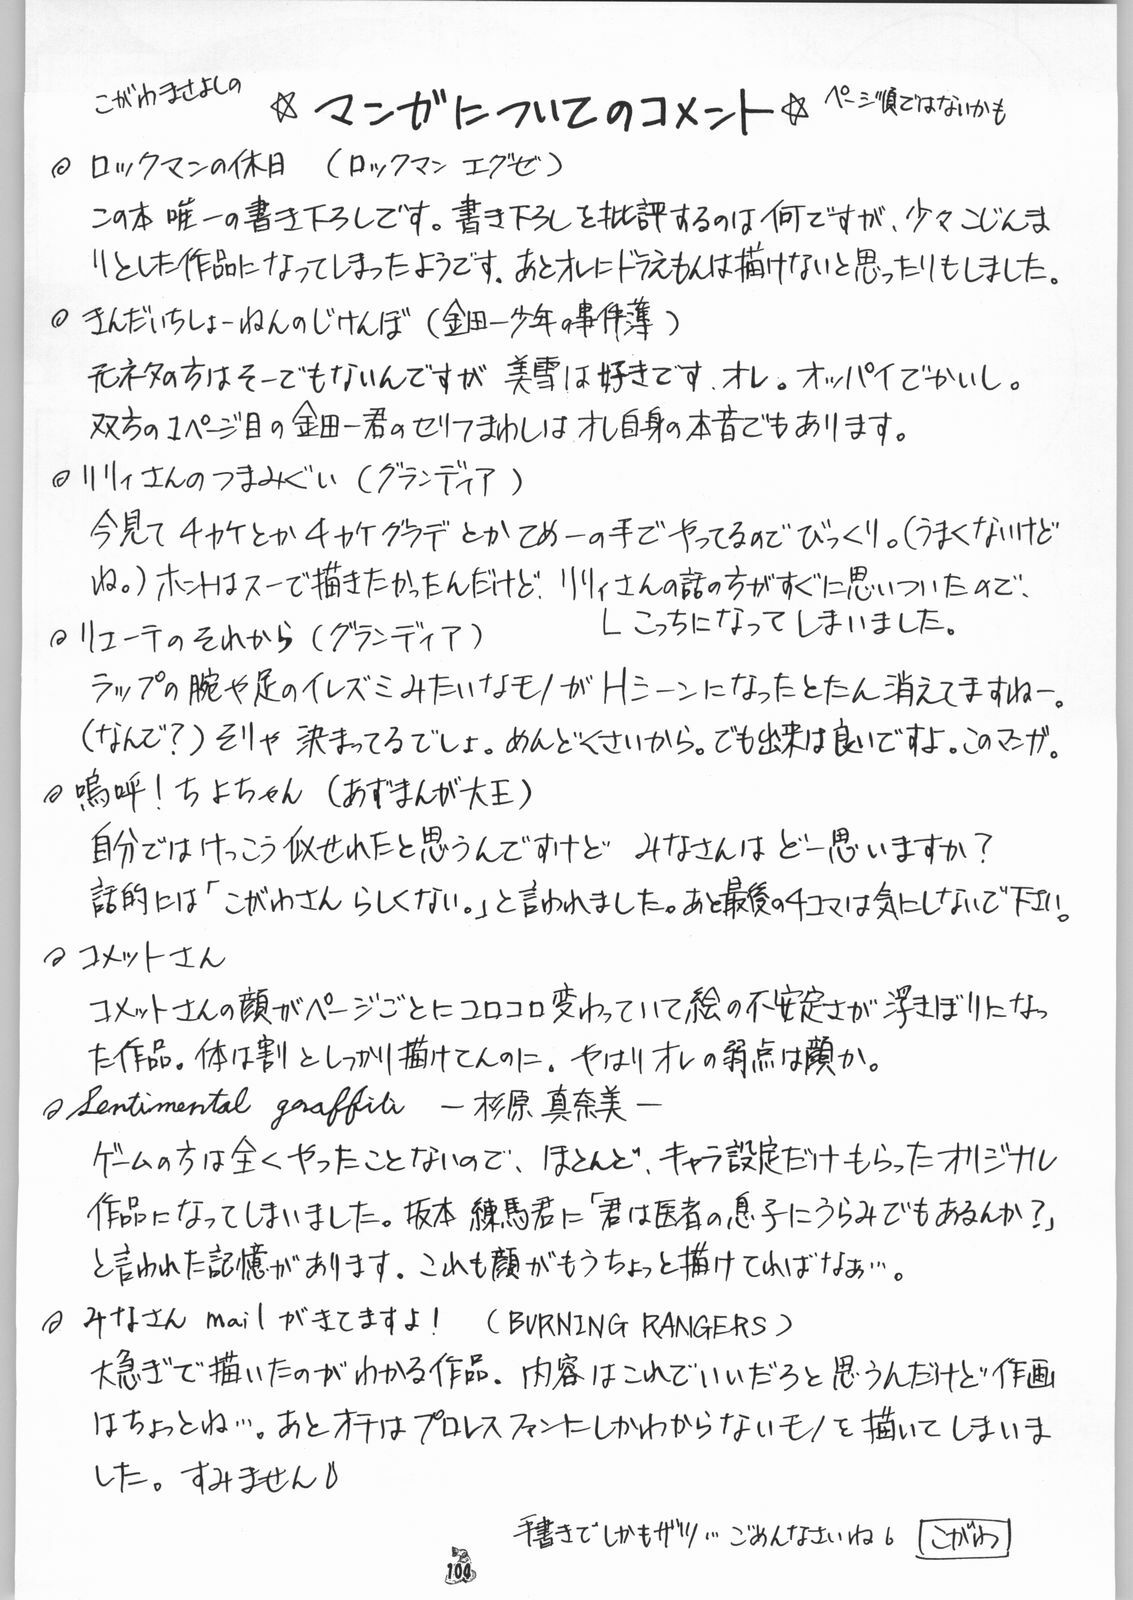 こがわまさよしの ☆ マンガについてのコメント☆ ページ損ではないかも
◎ ロックマンの休日 (ロックマン エグゼ)
この本 唯一の書き下ろしです。書き下ろしを批評するのは何ですが、少々こじんま
りとした作品になってしまったようです。あとオレにドラえもんは描けないと思ったりもしました。
◎ きんだいちしょーねんのじけんぼ (金田一少年の事件簿)
元ネタの方はそーでもないんですが 美雪は好きです、オレ。オッパイでかいし。
双方の1ページ目の金田一君のセリフまわしは オレ自身の本音でもあります。
◎ リリィさんのつまみぐい (グランディア)
今見て チカケとか チカケグラデとか てめーの手で やってるのでびっくり。(うまくないけど
ね。) ホントはスーで描きたかったんだけど、リリィさんの話の方がすぐに思いついたので、
しこっちになってしまいました。
◎ リエーテのそれから (グランディア)
ラップの腕や足のイレズミみたいなモノがHシーンになったとたん消えてますねー。
(なんで?) そりゃ 決まってるでしょ。めんどくさいから。でも出来は良いですよ。このマンガ。
◎ 嗚呼!ちよちゃん (あずまんが大王)
自分ではけっこう似せれたと思うんですけど みなさんは どー思いますか?
話的には「こがわさん らしくない。」と言われました。あと最後の4コマは気にしないで下さい。
◎ コメットさん
コメットさんの顔がページごとにコロコロ変わっていて絵の不安定さが浮きぼりになっ
た作品。体は割としっかり描けてんのに。やはりオレの弱点は顔か。
◎ Sentimental graffiti ー杉原 真奈美ー
ゲームの方は全くやったことないので、ほとんど、キャラ設定だけもらったオリジナル
作品になってしまいました。坂本 練馬君に「君は医者の息子にうらみでもあるんか?」
と言われた記憶があります。これも顔がもうちょっと描けてればなぁ…。
◎ みなさん mail がきてますよ! (BURNING RANGERS)
大急ぎで描いたのがわかる作品。内容はこれでいいだろと思うんだけど作画
はちょっとね…。あとオチはプロレスファンにしかわからないモノを描いてしまいま
した。すみません
手書きでしかもザツ… ごめんなさいね。 こがわ
104